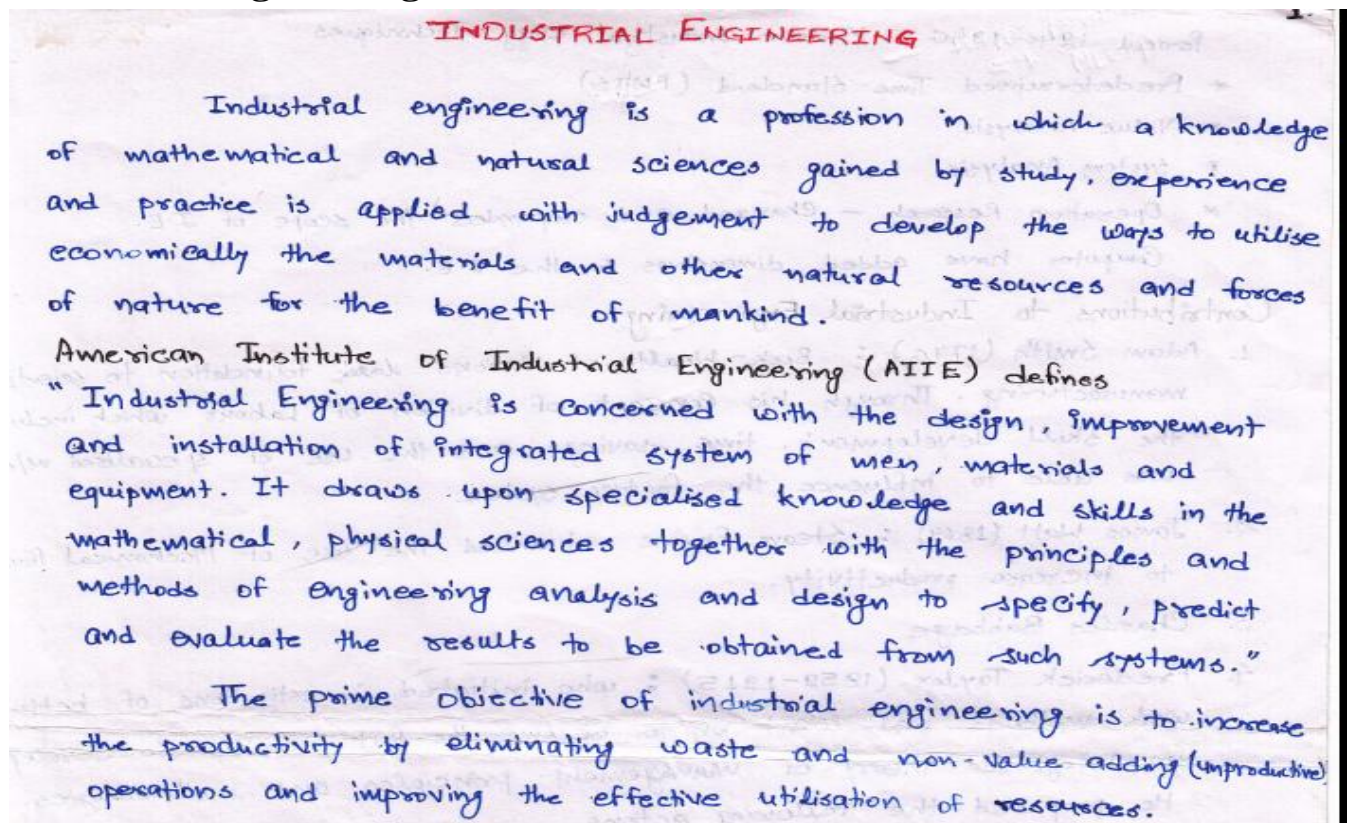 INDUSTRIAL ENGINEERING
Industrial engineering is a profession in which a knowledge
of mathematical and natural sciences gained by study, experience
and practice is applied with judgement to develop the ways to utilise
economically the materials and other natural resources and forces
of nature for the benefit of mankind.
American Institute of Industrial Engineering (AIIE) defines
"Industrial Engineering is concerned with the design, improvement
and installation of integrated system of men, materials and
equipment. It draws upon specialised knowledge and skills in the
mathematical, physical sciences together with the principles and
methods of engineering analysis and design to specify, predict
and evaluate the results to be obtained from such systems."
The prime objective of industrial engineering is to increase
the productivity by eliminating waste and non-value adding (unproductive)
operations and improving the effective utilisation of resources.